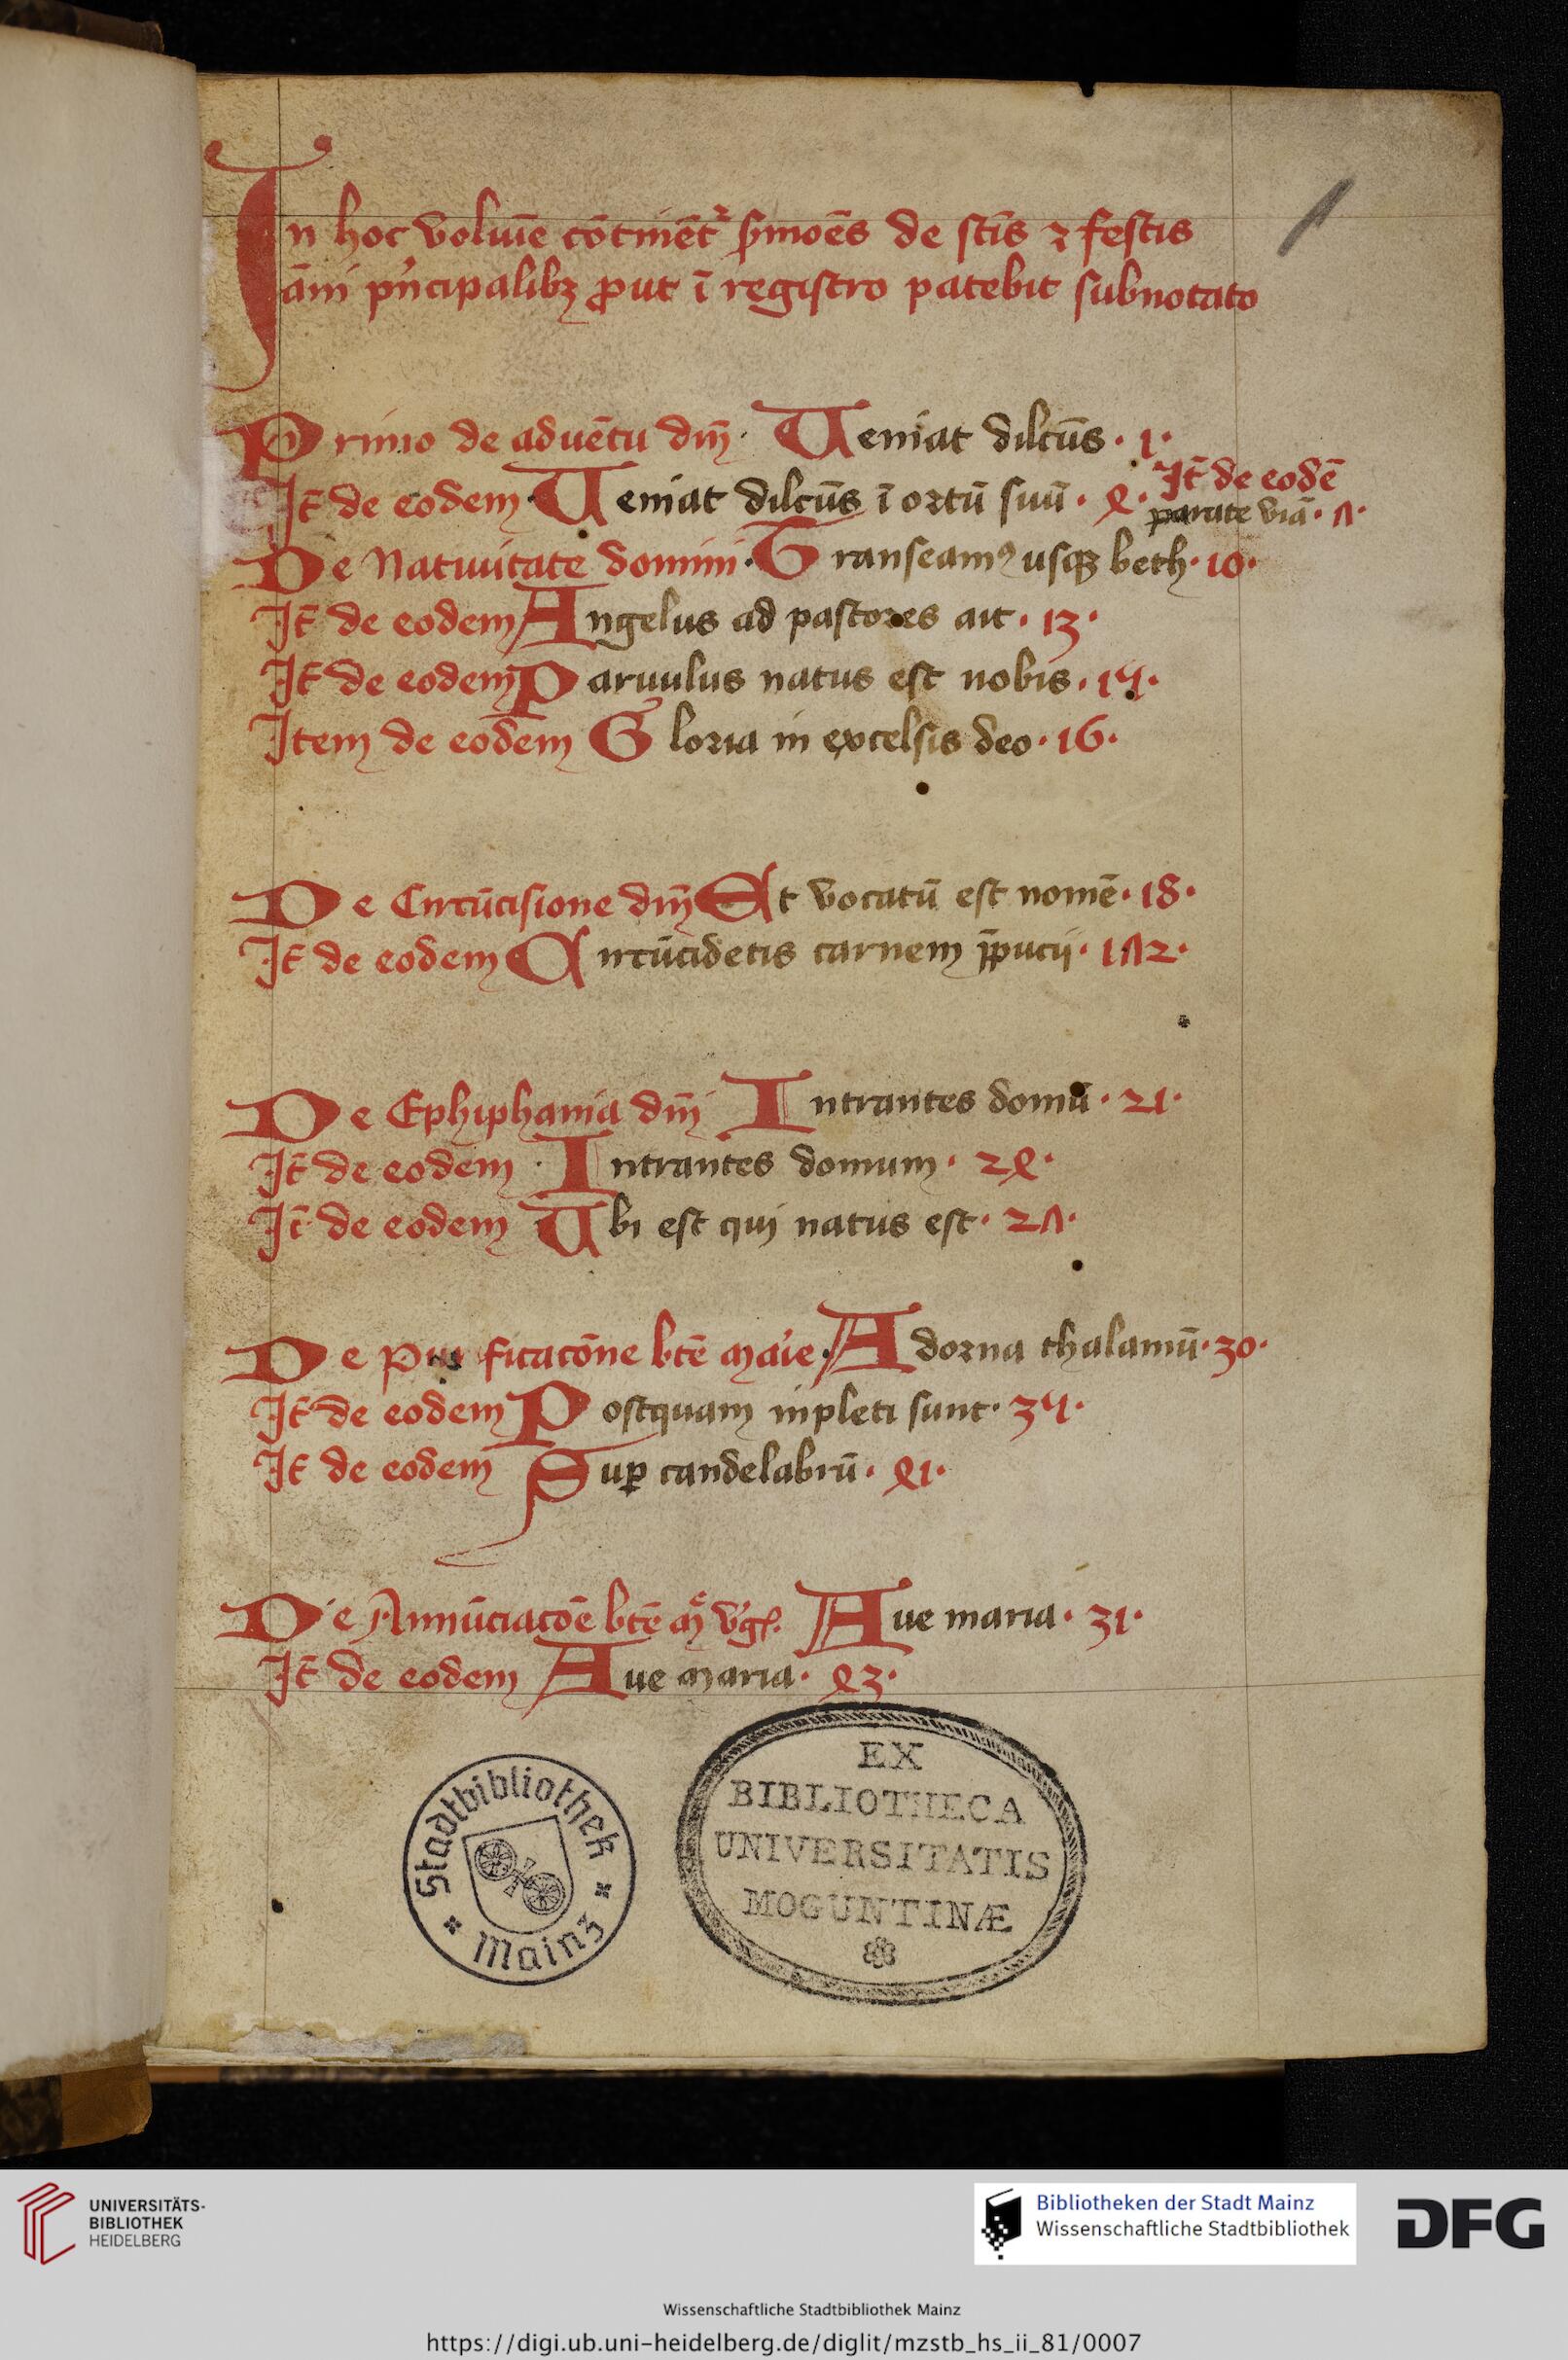 In hoc volūīe cōtinēt᷑ s̄mōēs de sc̄tis ⁊ festis
ān̄i pⁱncipalibꝫ ꝓut ī registro patebit subnotato
1
Primo de aduētu dn̄i · Ueniat dilc̄us · 1 ·
It̄ de eodem · Ueniat dilc̄us ī ortū suū · 4 ·
It̄ de eodē
parate viā · 7 ·
De Natiuitate domini · Transeamꝰ usqꝫ beth · 10 ·
It̄ de eodem Angelus ad pastores ait · 13 ·
It̄ de eodem Paruulus natus est nobis · 15 ·
Item de eodem Gloria in excelsis deo · 16 ·
De Circūcisione dn̄i Et vocatū est nomē · 18 ·
It̄ de eodem Circūcidetis carnem p̄pucij · 172 ·
De Ephiphania dn̄i Intrantes domū · 21 ·
It̄ de eodem · Intrantes domum · 24 ·
It̄ de eodem Ubi est qui natus est · 27 ·
De Purificacōne btē maͥe · Adorna thalamū · 30 ·
It̄ de eodem Postquam inpleti sunt · 35 ·
It̄ de eodem Suꝑ candelabrū · 41 ·
De Annūciacōē btē mͤ vͥgͥ. Aue maria · 31 ·
It̄ de eodem Aue maria · 43 ·
Stadtbibliothek
Mainz
EX
BIBLIOTHECA
UNIVERSITATIS
MOGUNTINÆ
UNIVERSITÄTS-
BIBLIOTHEK
HEIDELBERG
Bibliotheken der Stadt Mainz
Wissenschaftliche Stadtbibliothek
DFG
Wissenschaftliche Stadtbibliothek Mainz
https://digi.ub.uni-heidelberg.de/diglit/mzstb_hs_ii_81/0007